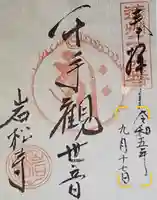 奉拝
令和五年
九月十七日
千手観世音
岩松寺